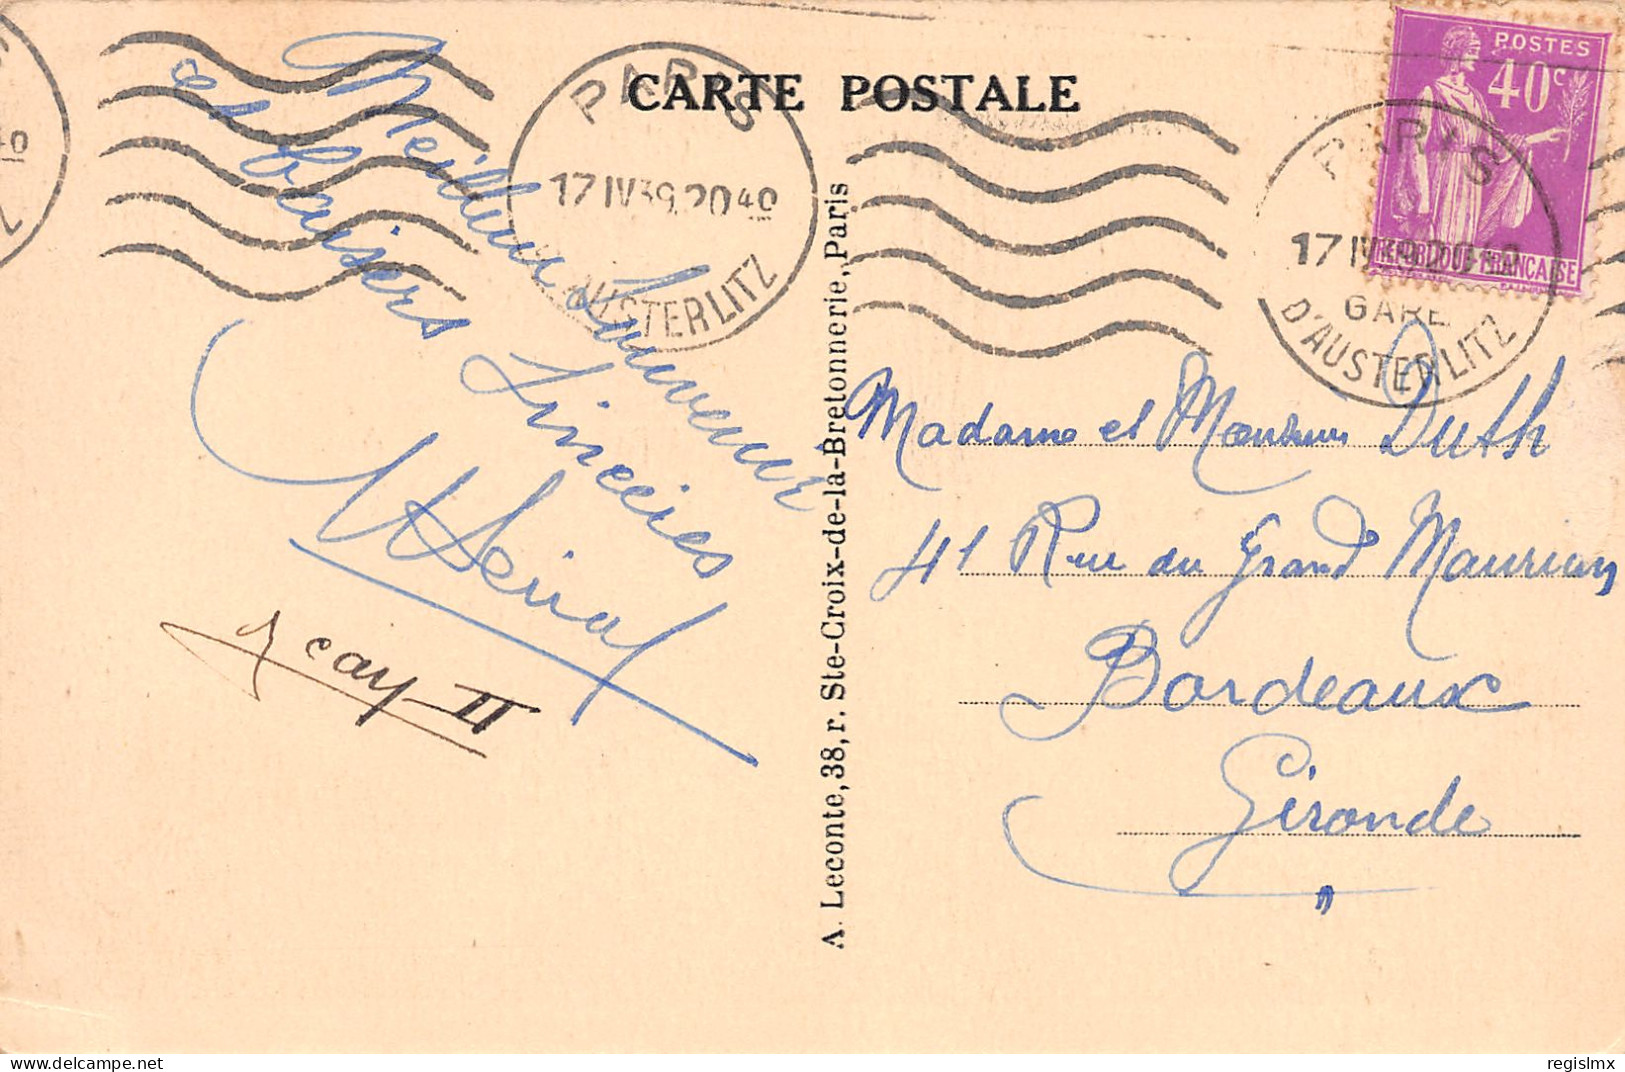 CARTE POSTALE
POSTES
40c
REPUBLIQUE FRANÇAISE
PARIS
17 IV 39 20 40
AUSTERLITZ
PARIS
17 IV
GARE
D'AUSTERLITZ
40
Meilleur Souvenir
et baisers Sincères
Ray II
A. Leconte, 38, r. Ste-Croix-de-la-Bretonnerie, Paris
Madame et Monsieur Duth
41 Rue du Grand Maurian
Bordeaux
Gironde
regislmx